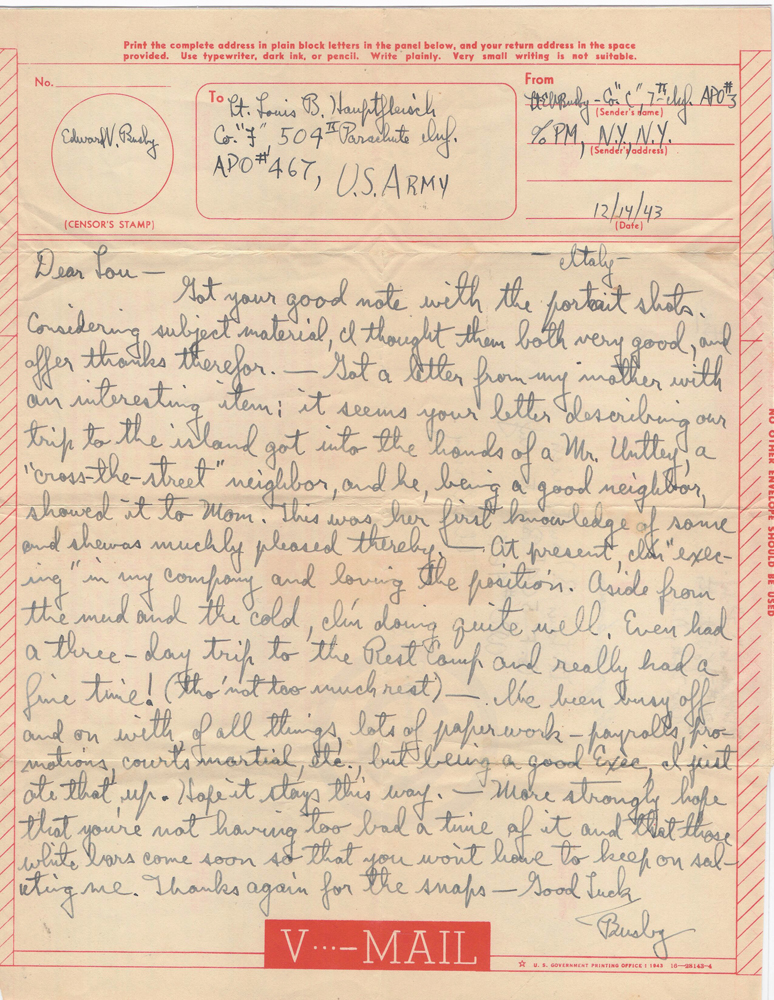 Print the complete address in plain block letters in the panel below, and your return address in the space
provided. Use typewriter, dark ink, or pencil. Write plainly. Very small writing is not suitable.
No.
Edward V. Busby
(CENSOR'S STAMP)
To Lt. Louis B. Hauptfleisch
Co. "F" 504th Parachute Inf.
APO #467, U.S. ARMY
From
Busby - Co. "C", 7th Inf. APO #3
(Sender's name)
% PM, N.Y., N.Y.
(Sender's address)
12/14/43
(Date)
- Italy -
Dear Lou -
Got your good note with the portrait shots.
Considering subject material, I thought them both very good, and
offer thanks therefor. - Got a letter from my mother with
an interesting item; it seems your letter describing our
trip to the island got into the hands of a Mr. Unttey, a
"cross-the-street" neighbor, and he, being a good neighbor,
showed it to Mom. This was her first knowledge of same
and she was muchly pleased thereby. - At present, I'm "exec-
ing" in my company and loving the position. Aside from
the mud and the cold, I'm doing quite well. Even had
a three-day trip to the Rest Camp and really had a
fine time! (tho' not too much rest) - I've been busy off
and on with, of all things, lots of paper work - payrolls, pro-
motions, courts martial, etc., but being a good Exec, I just
ate that up. Hope it stays this way. - More strongly hope
that you're not having too bad a time of it and that those
white bars come soon so that you won't have to keep on sal-
uting me. Thanks again for the snaps - Good Luck
Busby
V···-MAIL
☆ U. S. GOVERNMENT PRINTING OFFICE : 1943 16-28143-4
NO OTHER ENVELOPE SHOULD BE USED